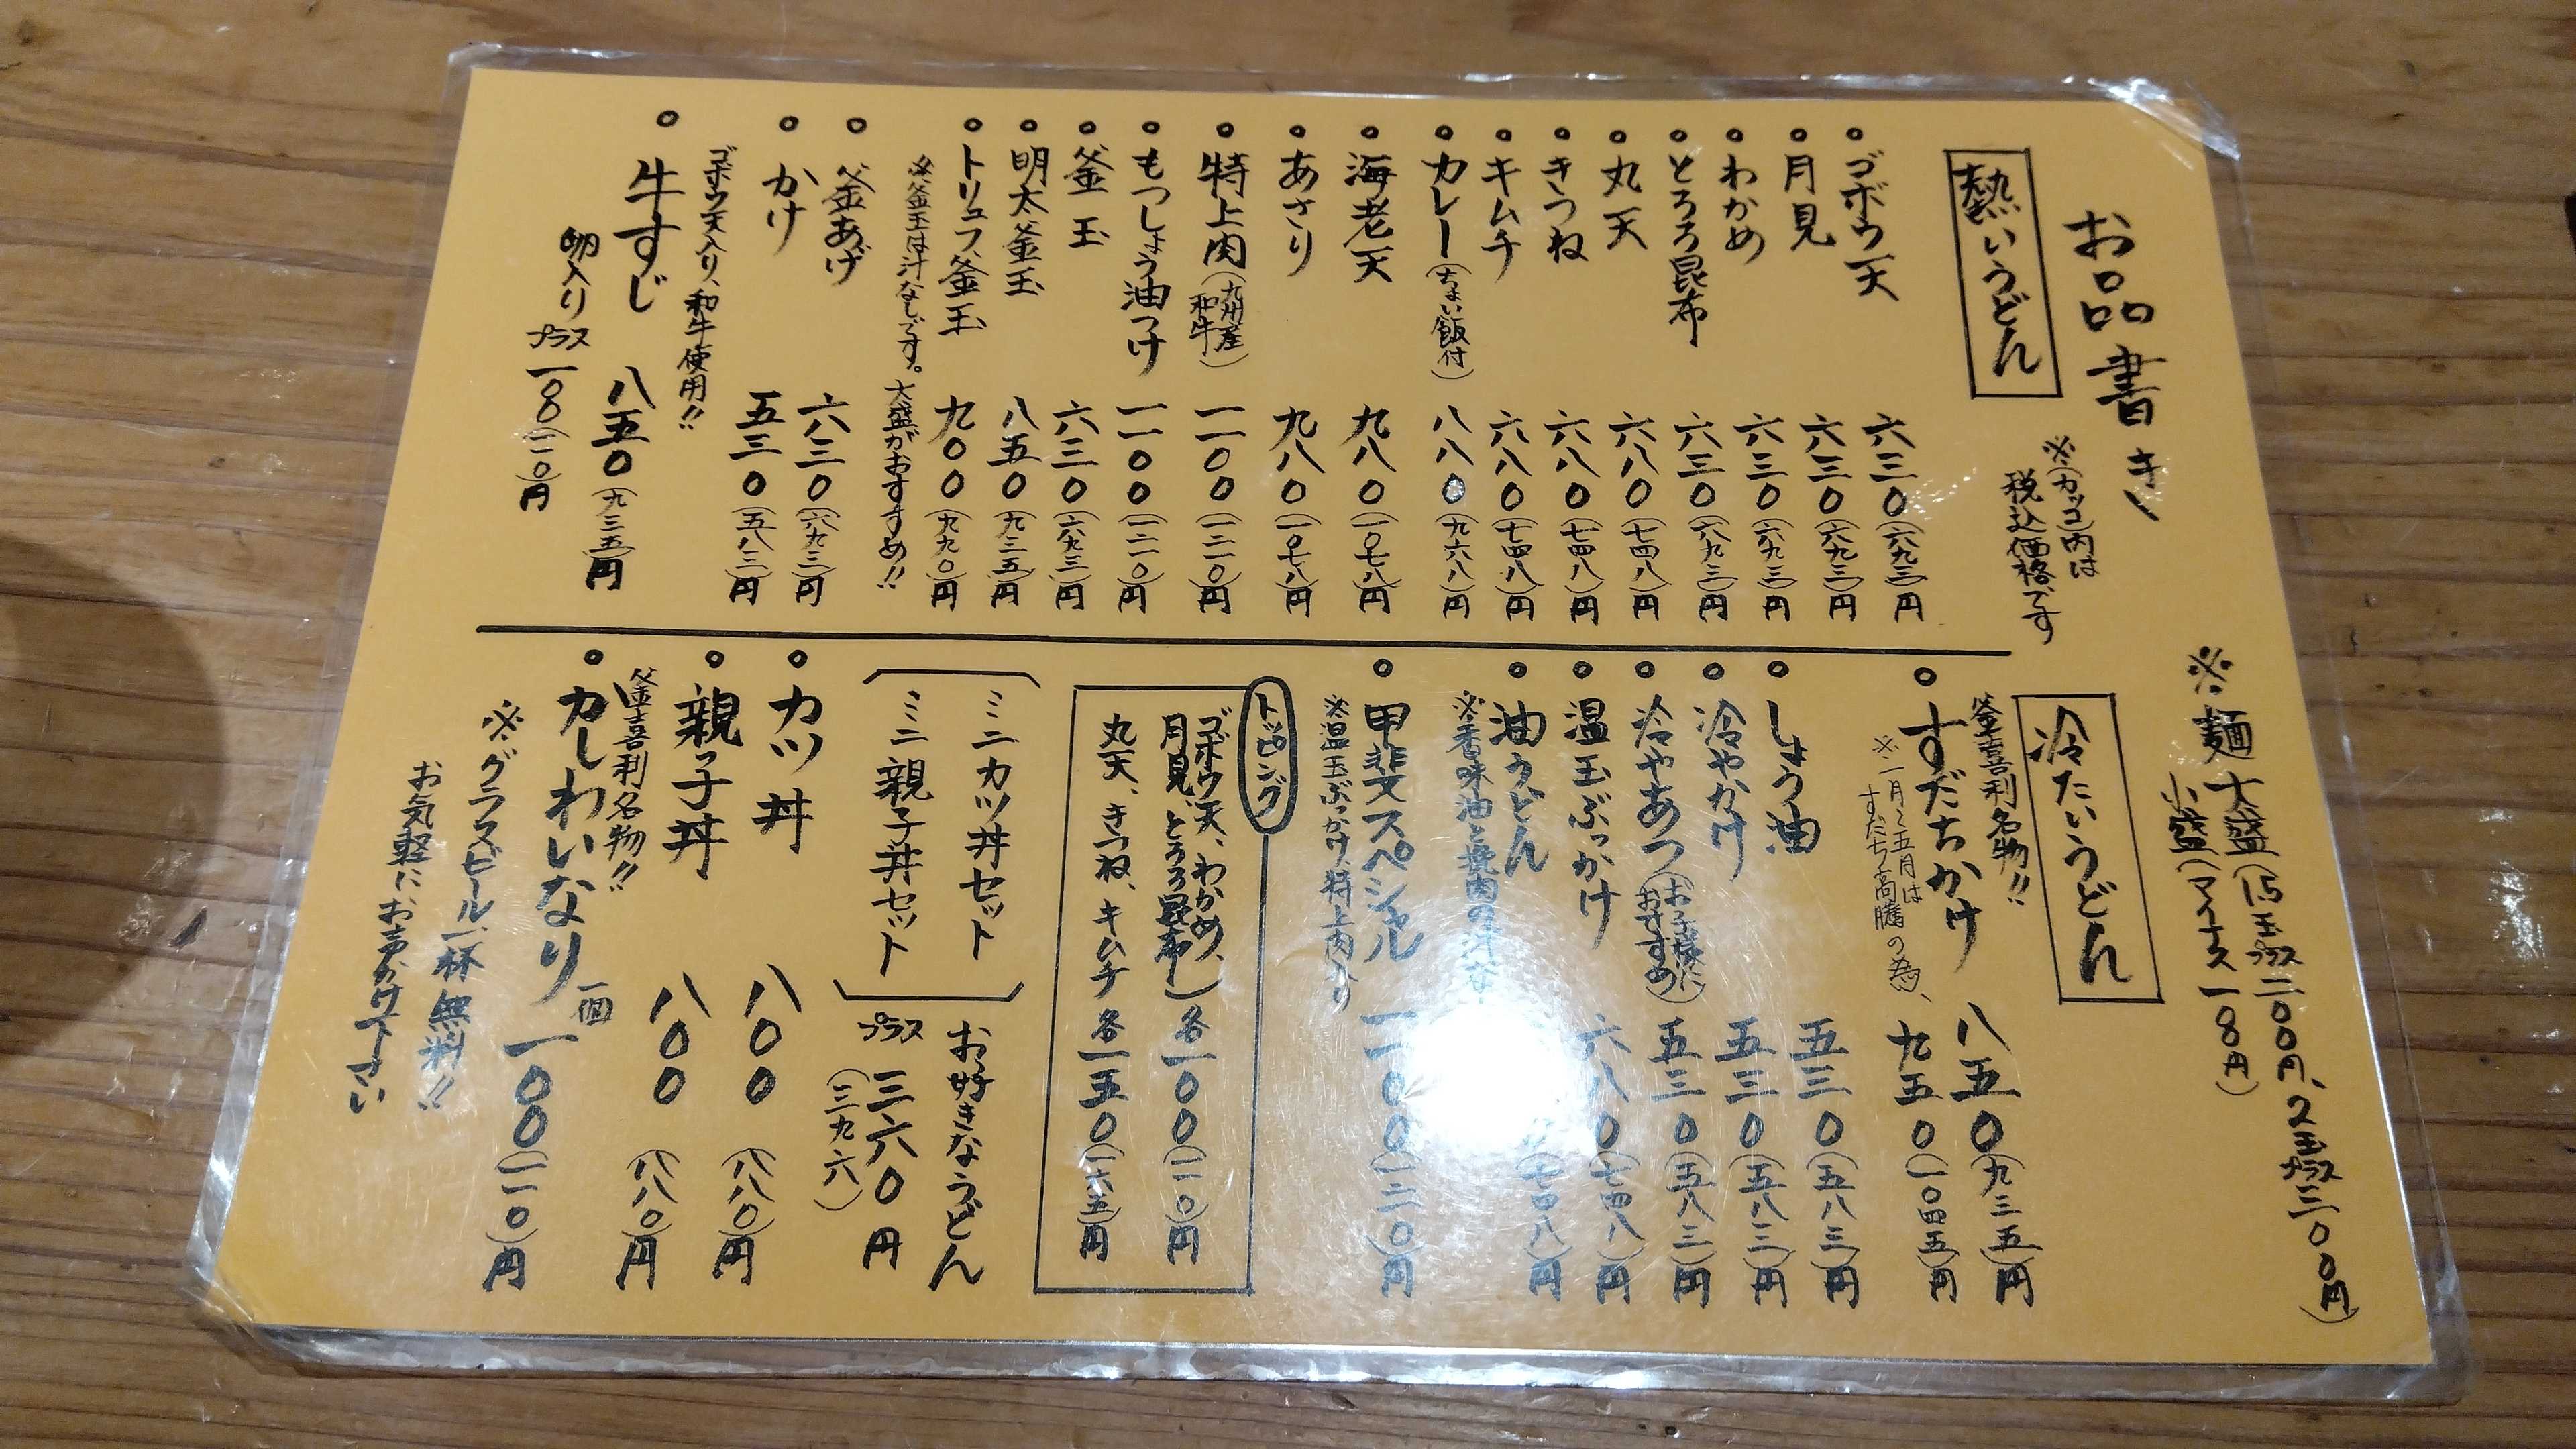 お品書き
※(カッコ)内は
税込価格です
※麺 大盛(1.5玉プラス二〇〇円、2玉プラス三〇〇円)
小盛(マイナス一〇円)
熱いうどん
。ゴボウ天 六三〇(六九三)円
。月見 六三〇(六九三)円
。わかめ 六三〇(六九三)円
。とろろ昆布 六三〇(六九三)円
。丸天 六八〇(七四八)円
。きつね 六八〇(七四八)円
。キムチ 六八〇(七四八)円
。カレー(ちょい飯付) 八八〇(九六八)円
。海老天 九八〇(一〇七八)円
。あさり 九八〇(一〇七八)円
。特上肉(九州産和牛) 一一〇〇(一二一〇)円
。もつしょう油つけ 一一〇〇(一二一〇)円
。釜玉 六三〇(六九三)円
。明太釜玉 八五〇(九三五)円
。トリュフ釜玉 九〇〇(九九〇)円
※釜玉は汁なしです。大盛がおすすめ!!
。釜あげ 六三〇(六九三)円
。かけ 五三〇(五八三)円
ゴボウ天入り、和牛使用!!
。牛すじ 八五〇(九三五)円
卵入り プラス一〇〇(一一〇)円
冷たいうどん
釜喜利名物!!
。すだちかけ 八五〇(九三五)円
※一月〜五月は
すだち高騰の為、九五〇(一〇四五)円
。しょう油 五三〇(五八三)円
。冷やかけ 五三〇(五八三)円
。冷やあつ(お子様におすすめ) 五三〇(五八三)円
。温玉ぶっかけ 六八〇(七四八)円
。油うどん (七四八)円
※香味油と挽肉の汁な
。甲斐スペシャル 一一〇〇(一二一〇)円
※温玉ぶっかけ、特上肉入り
トッピング
ゴボウ天、わかめ、
月見、とろろ昆布 各一〇〇(一一〇)円
丸天、きつね、キムチ 各一五〇(一六五)円
ミニカツ丼セット
ミニ親子丼セット
お好きなうどん
プラス三六〇円
(三九六)
。カツ丼 八〇〇(八八〇)円
。親子丼 八〇〇(八八〇)円
釜喜利名物!!
。かしわいなり 一個 一〇〇(一一〇)円
※グラスビール一杯無料!!
お気軽にお声がけ下さい